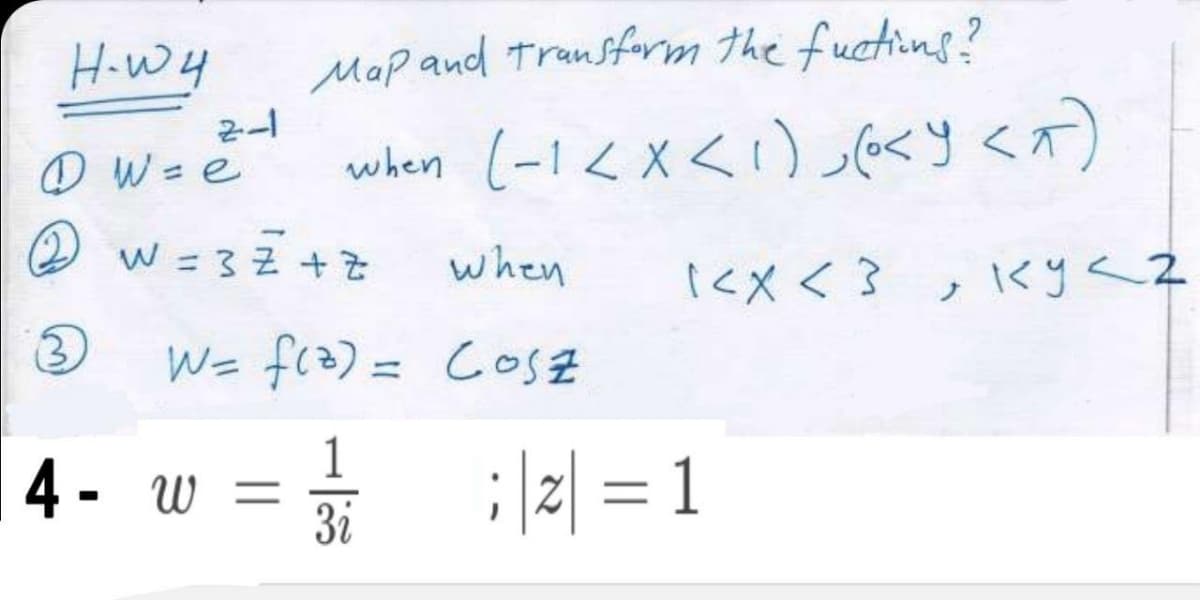 H.W4 Map and Transform the fuctions?
① W = e^{z-1} when (-1 < x < 1), (0 < y < π)
② W = 3 z̄ + z when 1 < x < 3 , 1 < y < 2
③ W = f(z) = Cos z
4 - w = 1/3i ; |z| = 1